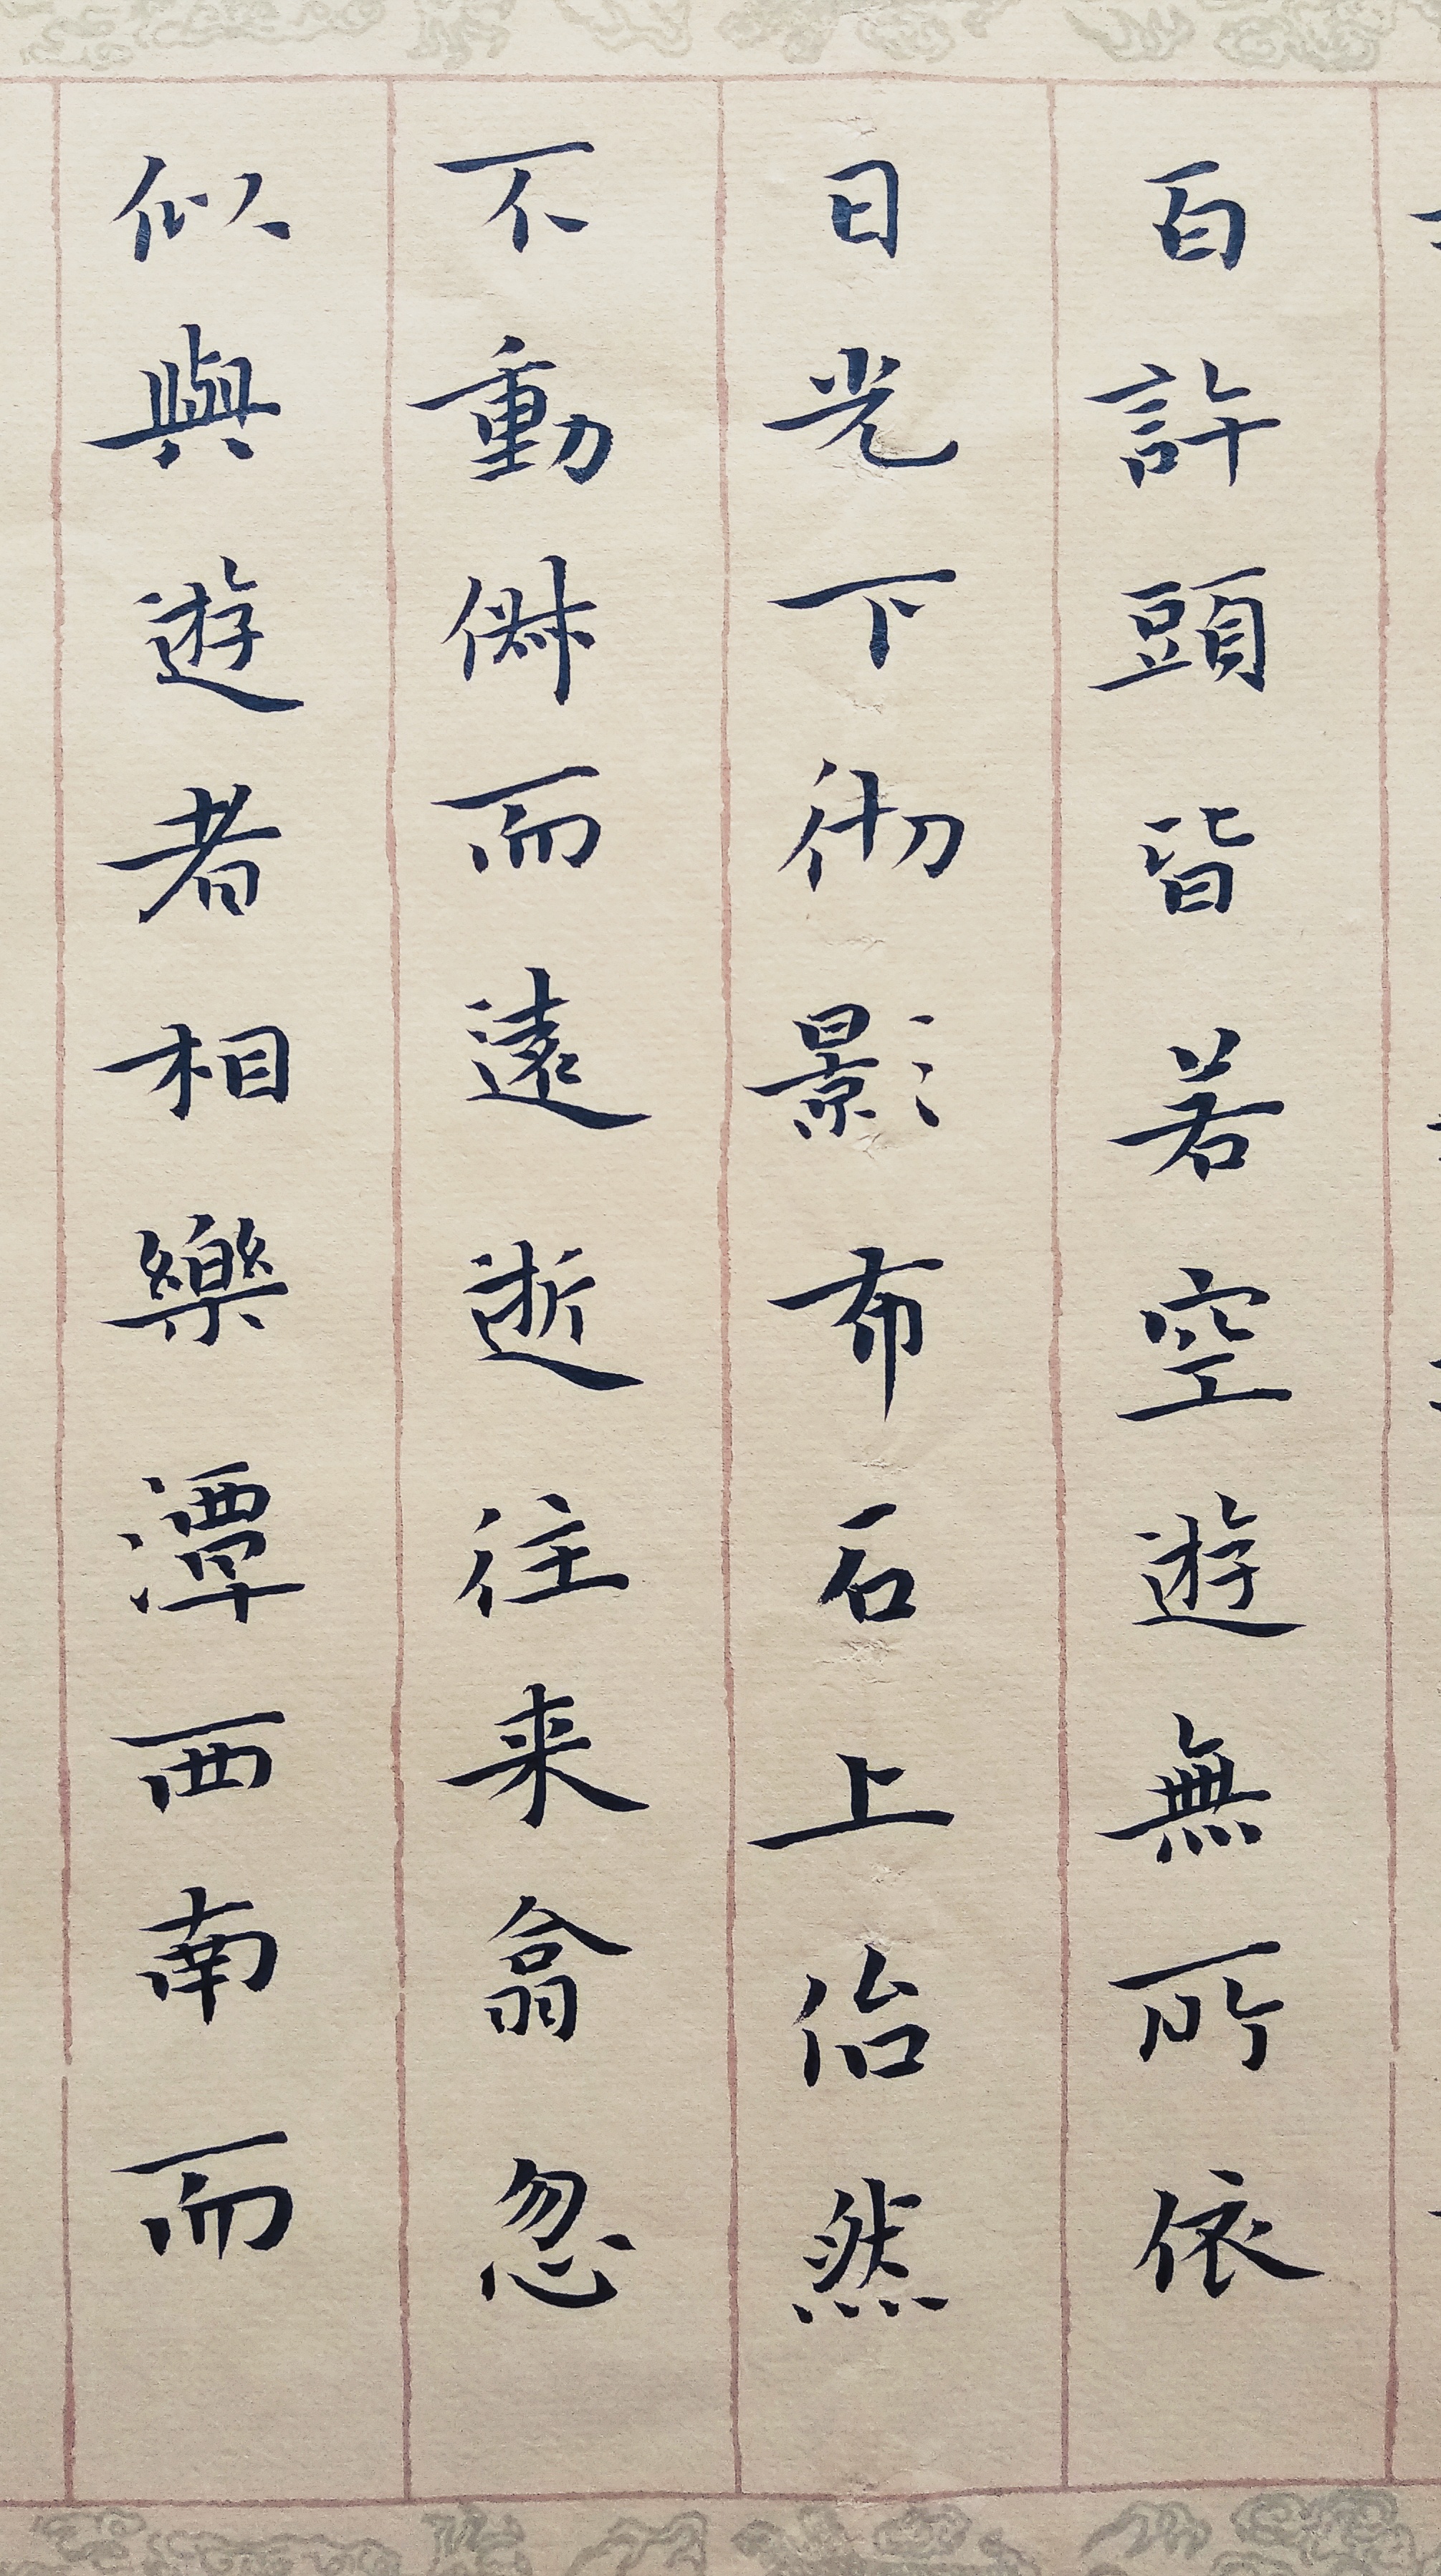 百許頭皆若空遊無所依
日光下彻影布石上佁然
不動俶而遠逝往来翕忽
似與遊者相樂潭西南而